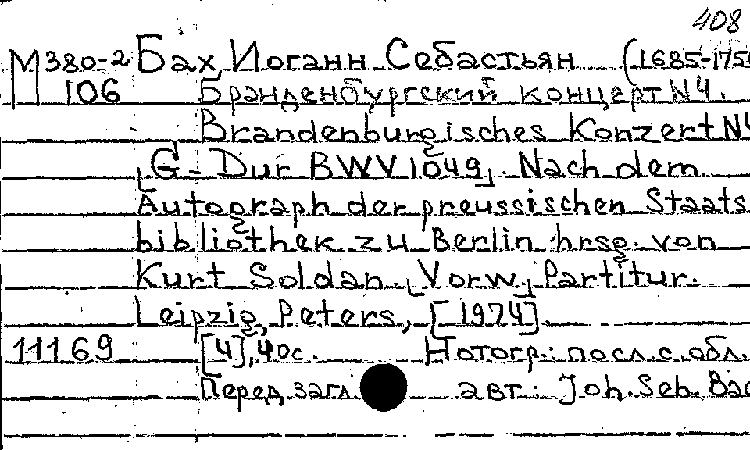 408
М380-2 Бах, Иоганн Себастьян (1685-1750
106 Бранденбургский концерт N4.
Brandenburgisches Konzert N4
[G-Dur BWV 1049]. Nach dem
Autograph der preussischen Staats
bibliothek zu Berlin hrsg. von
Kurt Soldan. [Vorw.] Partitur.
Leipzig, Peters, [1974].
11169 [4], 40с. Нотогр.: посл.с.обл.
Перед загл. авт.: Joh. Seb. Bac